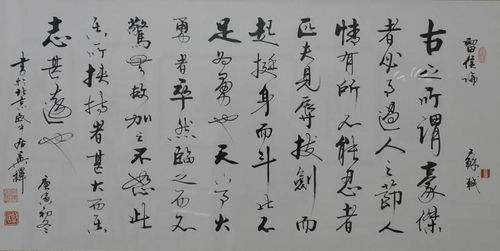 留侯論 蘇軾
古之所謂豪傑
者必有過人之節人
情有所不能忍者
匹夫見辱拔劍而
起挺身而斗此不
足為勇也天下有大
勇者卒然臨之而不
驚無故加之不怒此
其所挾持者甚大而其
志甚遠也 庚寅初冬
書於北京